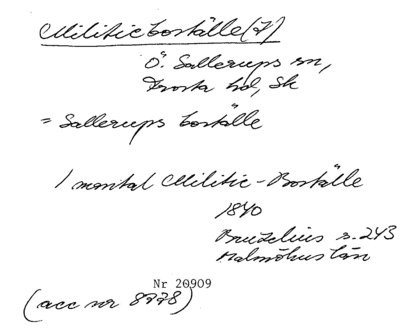 Militieboställe (7)
Ö. Sallerups sn,
Frosta hd, Sk
= Sallerups boställe
1 mantal Militie-Boställe
1840
Bruzelius s. 243
Malmöhus län
Nr 20909
(acc nr 8778)